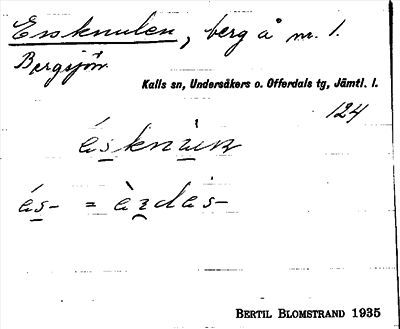 Essknulen, berg å nr. 1.
Bergsjön.
Kalls sn, Undersåkers o. Offerdals tg, Jämtl. l.
124
ésknùln
és- = èrdes-
BERTIL BLOMSTRAND 1935